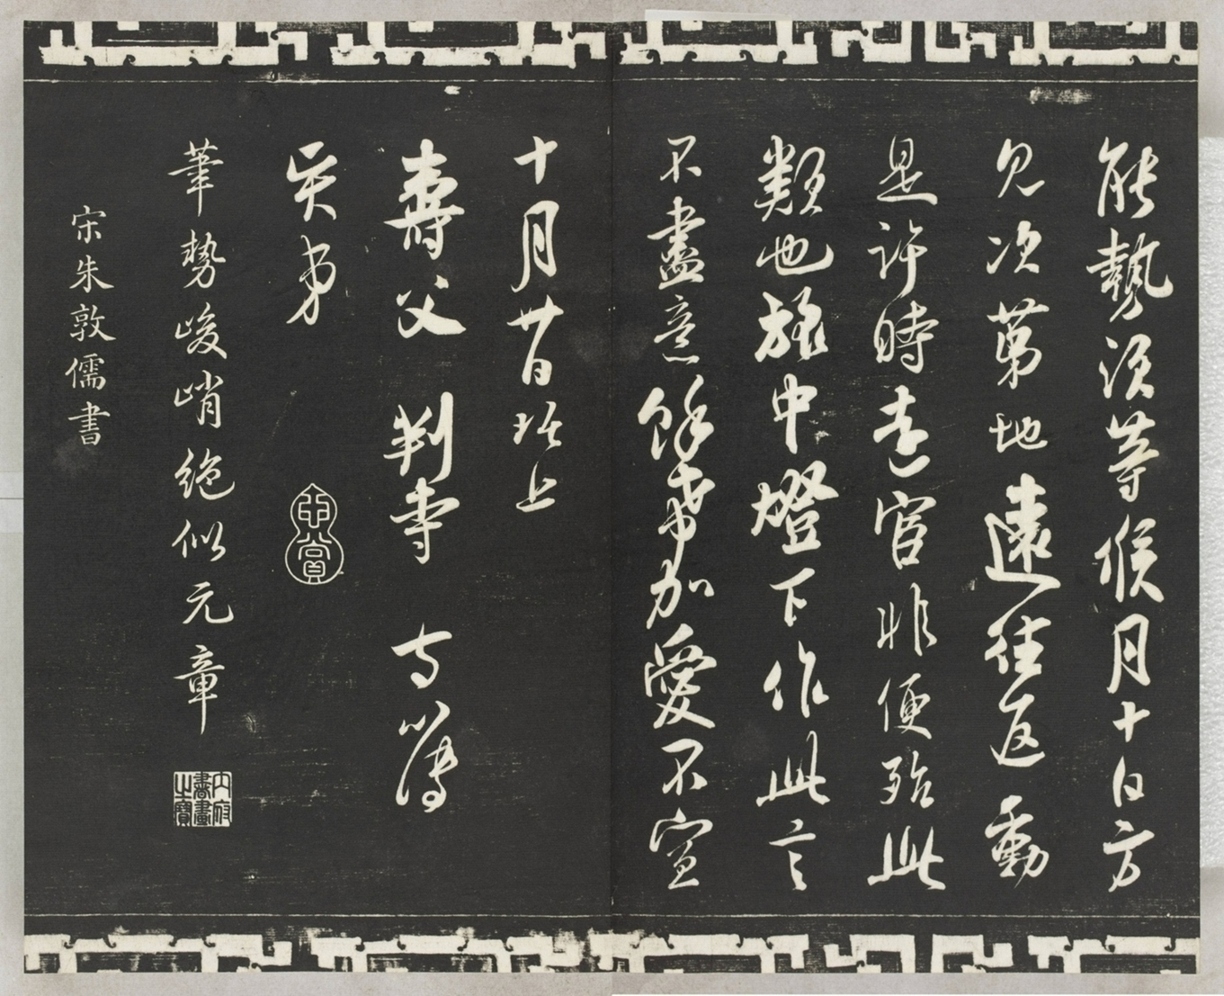 能執須等候月十日方
見次第地遠往返動
是許時遠官非便殆此
類也旅中燈下作此言
不盡意餘希加愛不宣
十月廿日琚上
壽父判寺
賢弟
中賞
筆勢峻峭絕似元章
內府書畫之寶
宋朱敦儒書